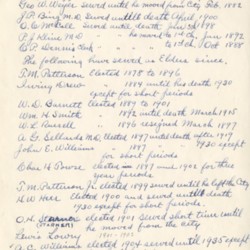 Geo W. Weyer served until he moved from City Feb. 1882
J.P. Bing M.D. Served until death April 1900
D.C. served until death Jan 1888
P.J. Kline M.D. he moved to Jan 1892
C.P. Dennis Clerk to Oct 1888
The following have served as Elders since.
T.M. Patterson Elected 1878 to 1896
Irving Drew " 1884 until his death 1930
except for short periods
W.D. Barnett Elected 1887 to 1901
Wm H Smith " 1887 to 1892 death March 1915
W.L. Russell " 1886 resigned March 1897
A.G. Sellards M.D. Elected 1887 until death after 1917
John E. Williams " 1887 "
for short periods
Chas H Towse elected in 1887 and 1902 for three
year periods.
T.M. Patterson Jr. elected 1899 served until he left the City
H.W. Heer Elected 1900 and served until death
1930 except for short periods.
O.H. elected 1901 served short time until
(STARGER) he moved from the city
Lewis Lowry
A.C. Williams elected 1904 served until 1935 except